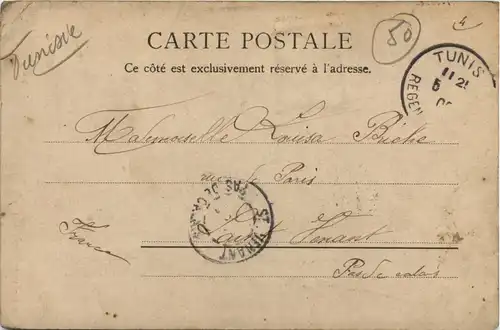 Tunisie
CARTE POSTALE
50
4
Ce côté est exclusivement réservé à l'adresse.
TUNIS
11 25
5
REGEN
Mademoiselle Louisa Buche
rue de Paris
Saint Venant
ST VENANT
PAS DE CALAIS
France
Pas de calais